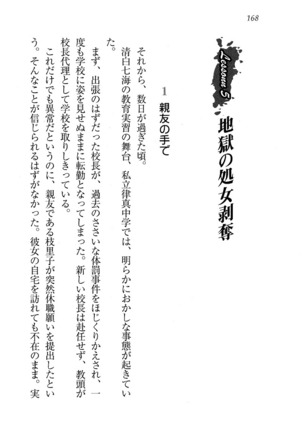 168
Lessons 5
地獄の処女剥奪
1 親友の手て
それから、数日が過ぎた頃。
清白七海の教育実習の舞台、私立律真中学では、明らかにおかしな事態が起きてい
た。
まず、出張のはずだった校長が、過去のささいな体罰事件をほじくりかえされ、一
度も学校に姿を見せぬままに転勤となってしまった。新しい校長は赴任せず、教頭が
校長代理として学校を取りしきっている。
これだけでも異常だというのに、親友である枝里子が突然休職願いを提出したとい
う。そんなことが信じられるはずがなかった。彼女の自宅を訪れても不在のまま。実